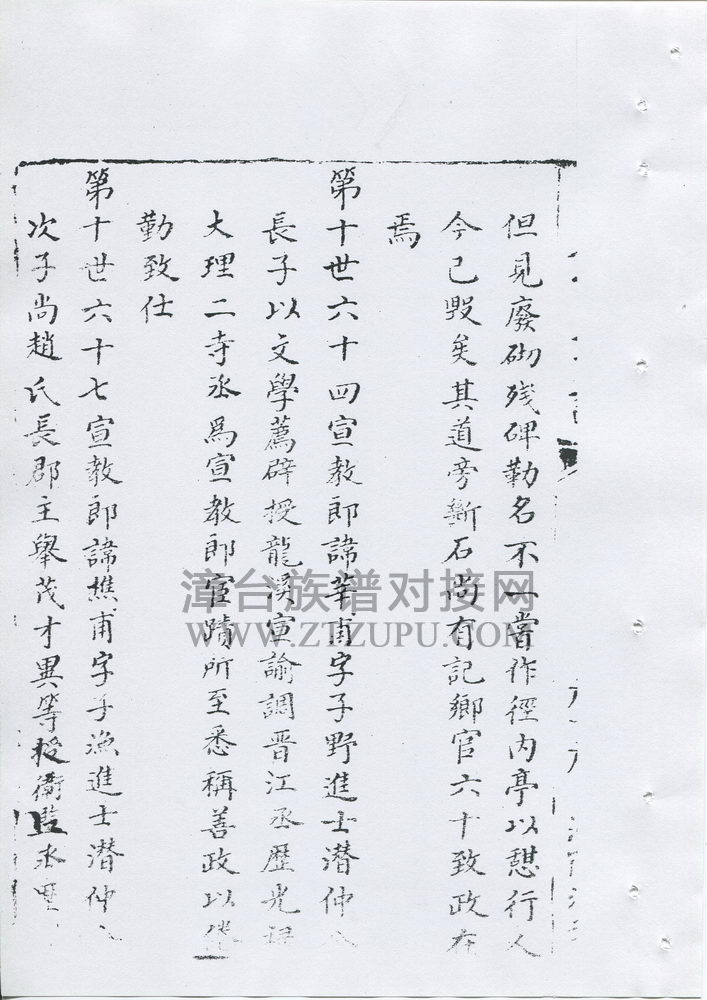 但見廢砌残碑勒名不一當作徑内亭以憇行人
今已毀矣其道旁斷石尚有記鄉官六十致政在
焉
第十世六十四宣教郎諱華甫字子野進士潜仲
長子以文學薦辟授龍溪宣諭調晋江丞歷光禄
大理二寺丞爲宣教郎官蹟所至悉稱善政以
勤致仕
第十世六十七宣教郎諱樵甫字子漁進士潜仲
次子尚趙氏長郡主舉茂才異等授衛監丞
漳台族谱对接网
WWW.ZTZUPU.COM